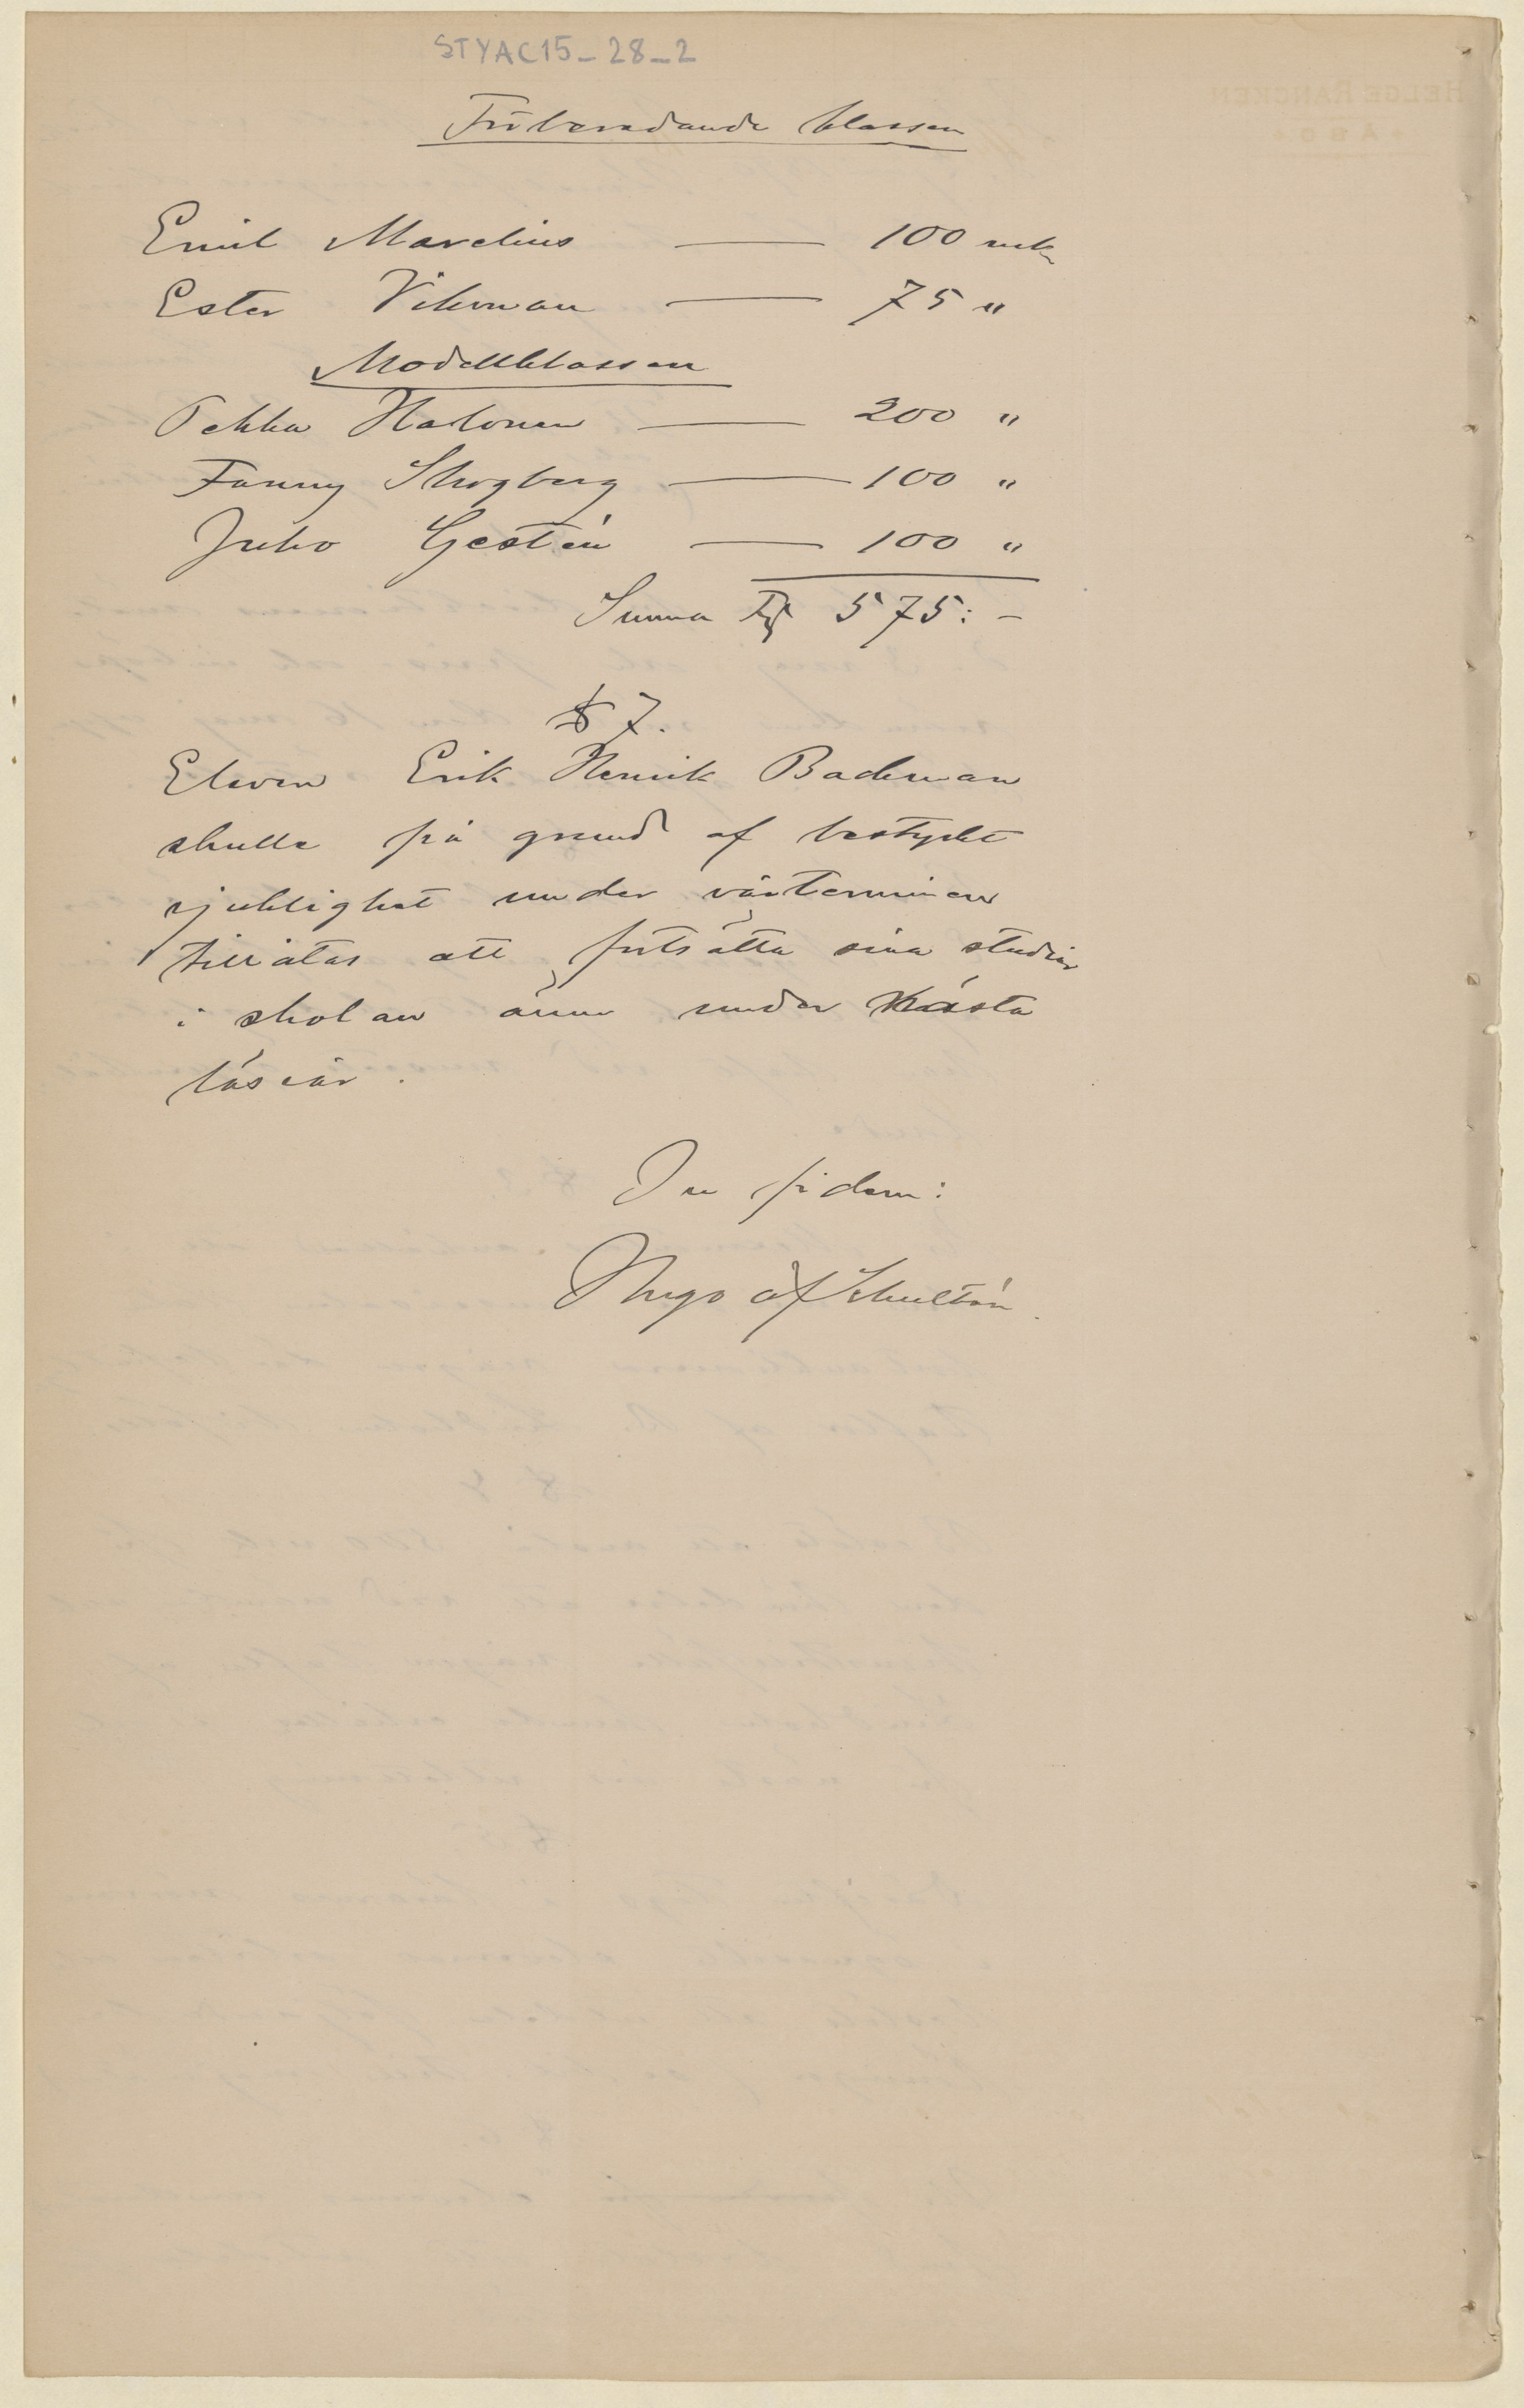 STYAC15-28-2
Förberedande klassen
Emil Marelius — 100 mk
Ester Vikman — 75 "
Modellklassen
Pekka Halonen — 200 "
Fanny Skogberg — 100 "
Juho Gestén — 100 "
Summa Fmk 575:-
§ 7.
Eleven Erik Henrik Backman
skulle på grund af bestyrkt
sjuklighet under vårterminen
tillåtas att fortsätta sina studier
i skolan ännu under nästa
läseår.
In fidem:
Hugo af Schultén.